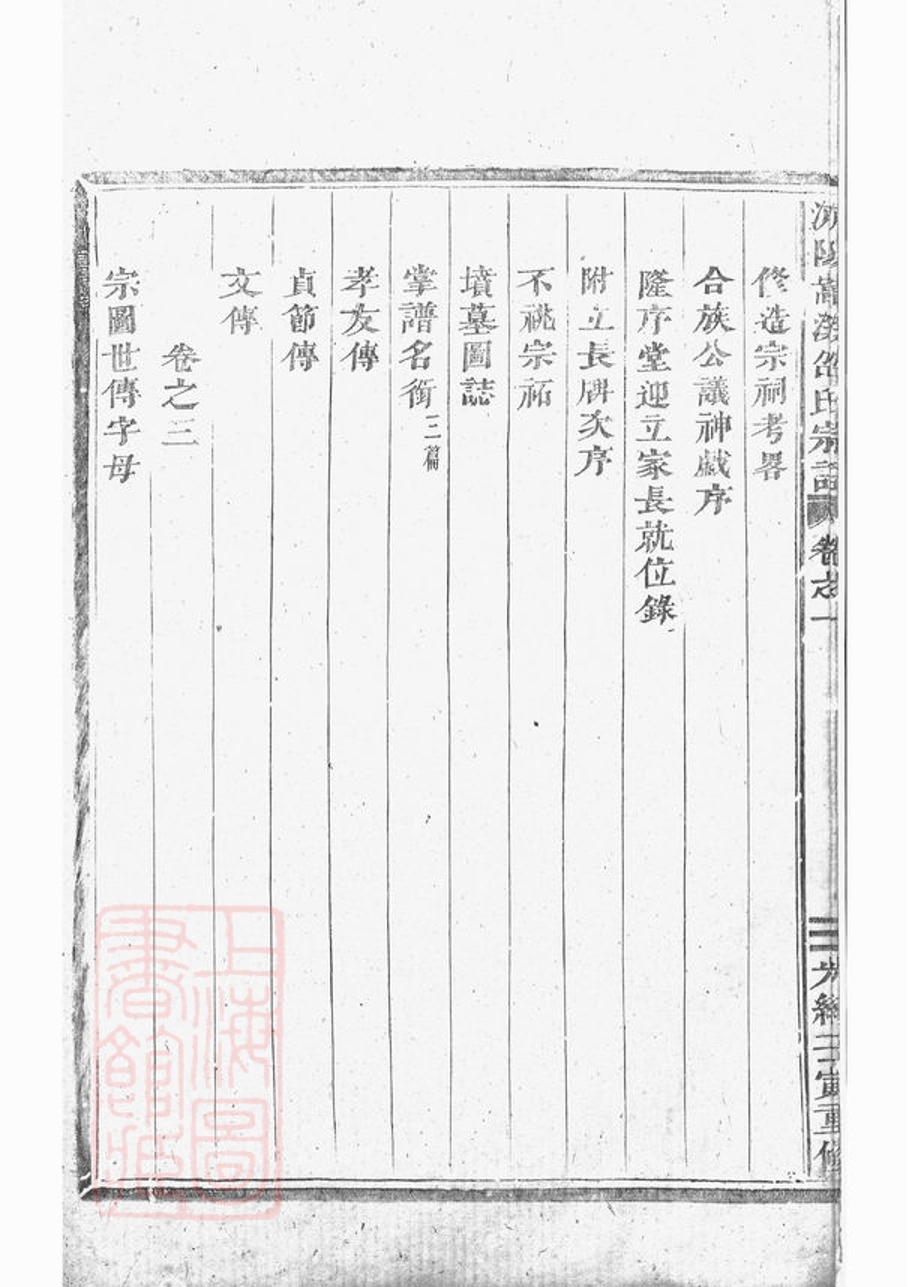 嵩溪邵氏宗譜 卷之一 光緒壬寅重修
修造宗祠考畧
合族公議神戯序
隆序堂迎立家長就位錄
附立長房次序
不祧宗祏
墳墓圖誌
掌譜名銜三篇
孝友傳
貞節傳
文傳
卷之三
宗圖世傳字母
上海圖書館藏